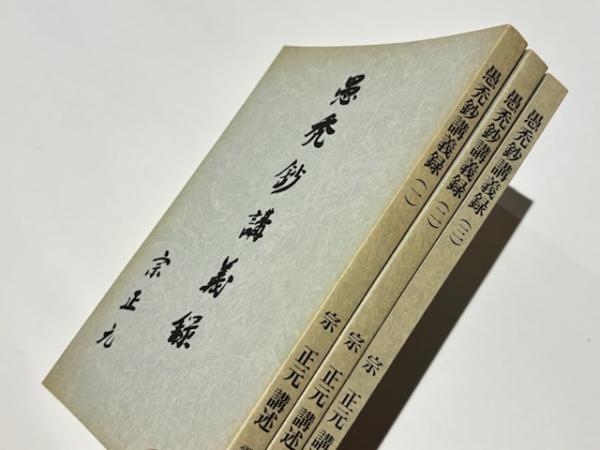 愚禿鈔講義録
宗正元
愚禿鈔講義録(一)
宗 正元 講述
愚禿鈔講義録(二)
宗 正元 講述
愚禿鈔講義録(三)
宗 正元 講